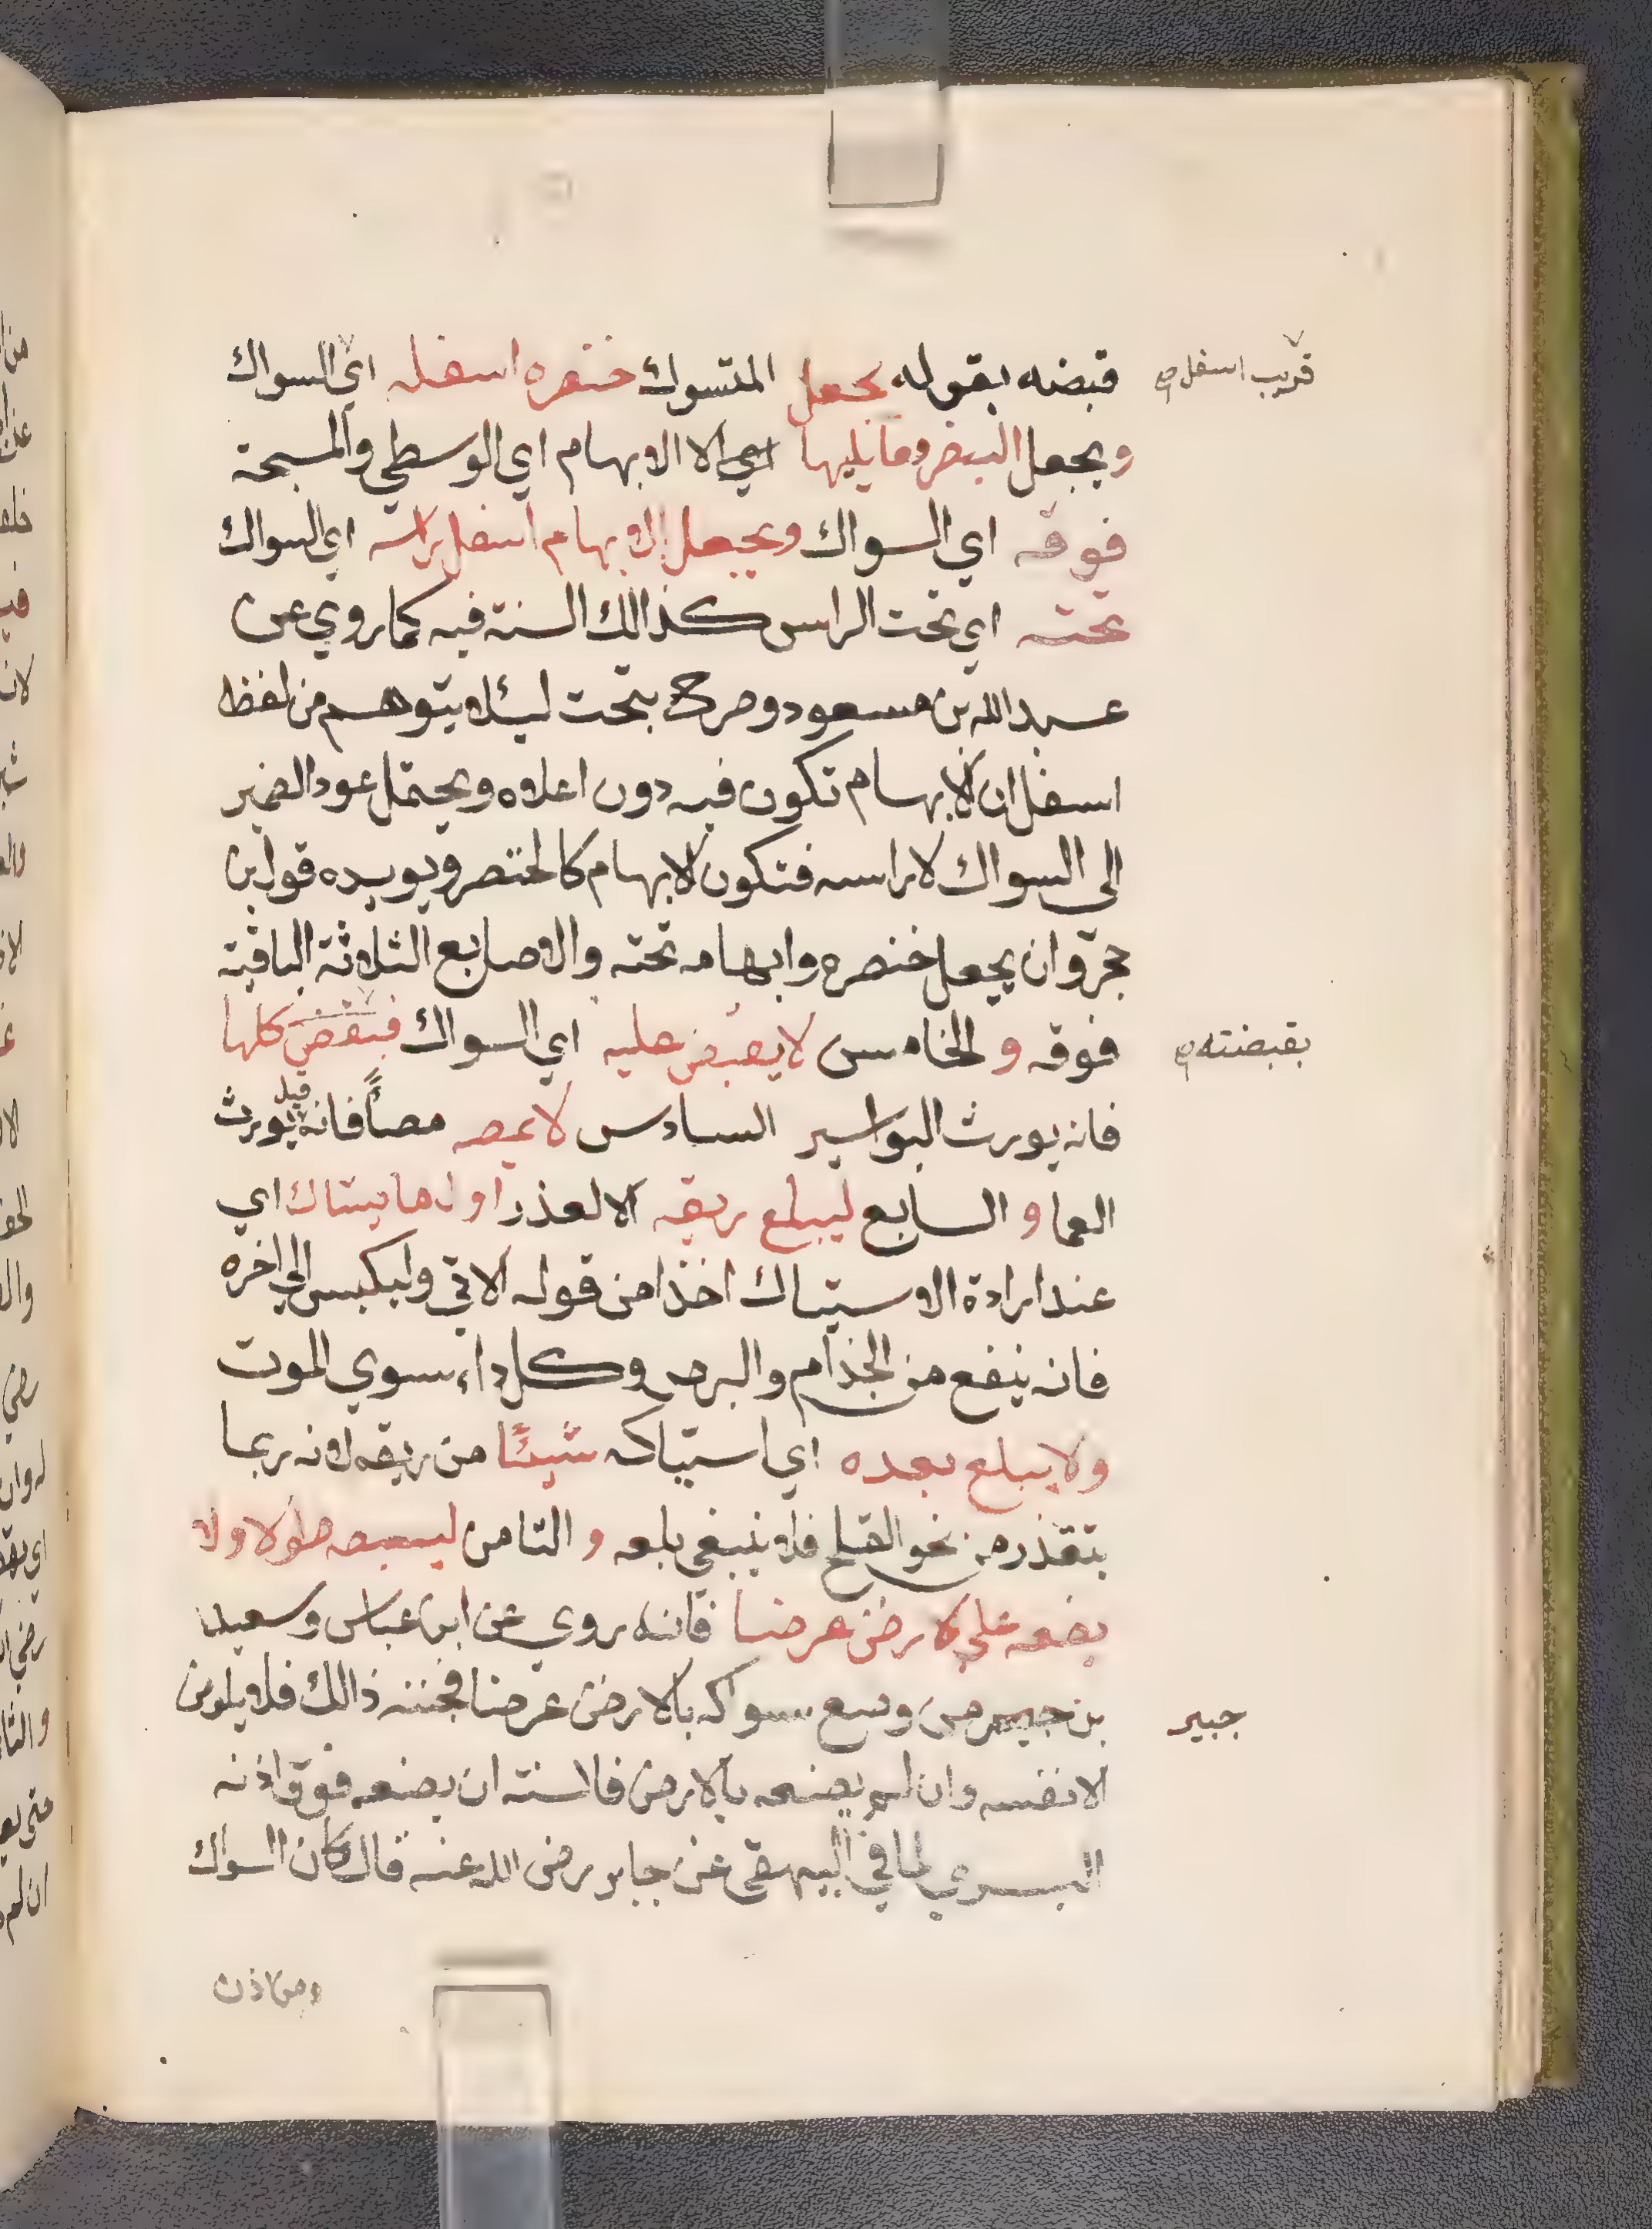 قبضه بقوله يجعل المتسوك خنصره اسفله اي السواك
قريب اسفل صح
ويجعل البنصر وما يليها اي الا الابهام اي الوسطي والمسبحة
فوقه اي السواك ويجعل الابهام اسفل راسه اي السواك
تحته اي تحت الراس كذالك السنة فيه كما روي عن
عبد الله بن مسعود وصرح بتحت ليئلا يتوهم من لفظه
اسفل ان الابهام تكون فيه دون اعلاه ويحتمل عود الضمير
الي السواك لا راسه فتكون الابهام كالخنصر ويويده قول ابن
حجر وان يجعل خنصره وابهامه تحته والاصابع الثلاثة الباقية
فوقه و الخامس لا يقبض عليه اي السواك فبقضي كلها
بقبضته صح
فانه يورث البواسير السادس لا يمصه مصاً فانه قيل يورث
العما و السابع ليبلع ريقه الا لعذر اول ما يستاك اي
عند ارادة الاستياك اخذا من قوله الاتي وليكبس الي اخره
فانه ينفع من الجذام والبرص وكل داء سوي الموت
ولا يبلع بعده اي استياكه شيئًا من ريقه لانه ربما
يتقذر من نحو القلح فلا ينبغي بلعه و الثامن لينصبه طولا ولا
يضعه علي الارض عرضا فانه روي عن ابن عباس وسعيد
بن جبير من وضع سواكه بالارض عرضا فجن من ذالك فلا يلومن
جبير
الا نفسه وان لم يضعه بالارض فالسنة ان يضعه فوق اذنه
اليسري لما في البيهقي عن جابر رضي الله عنه قال كان السواك
من اذن